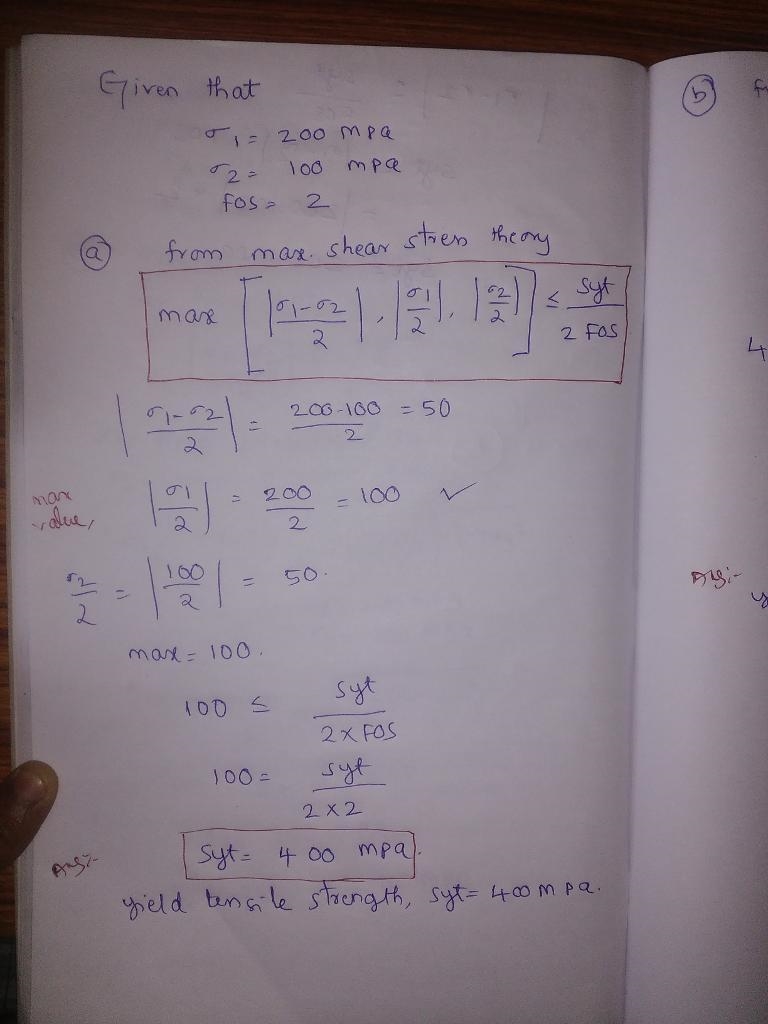 Given that
σ1 = 200 mpa
σ2 = 100 mpa
FOS = 2
(a) from max. shear stress theory
max [ |σ1-σ2/2|, |σ1/2|, |σ2/2| ] ≤ Syt/2 FOS
|σ1-σ2/2| = 200-100/2 = 50
max value, |σ1/2| = 200/2 = 100 ✓
σ2/2 = |100/2| = 50.
max = 100.
100 ≤ Syt/2×FOS
100 = Syt/2×2
Ans:- Syt = 400 mpa.
yield tensile strength, Syt = 400 mpa.
(b)
4
Ans:-